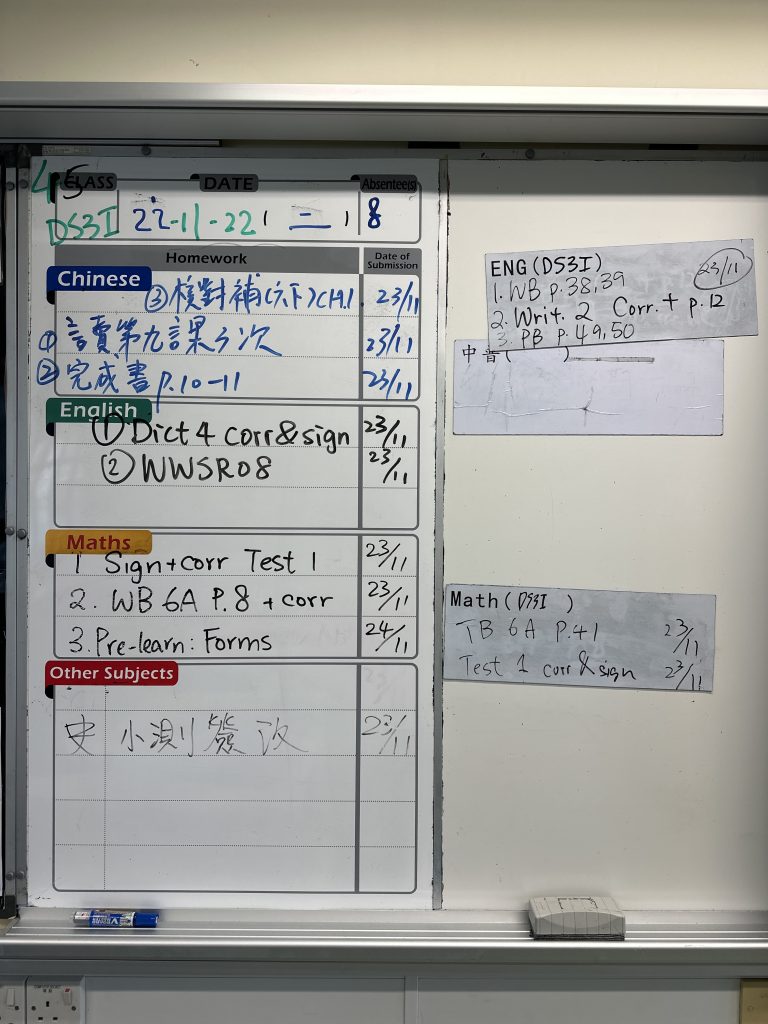 4 5
CLASS DATE Absentee(s)
DS3I 22-11-22 ( 二 ) 8
Homework Date of Submission
Chinese
③核對補(六下)CH.1 23/11
① 讀第九課3次 23/11
② 完成書p.10-11 23/11
English
① Dict 4 corr & sign 23/11
② WWSR08 23/11
Maths
1 Sign + corr Test 1 23/11
2. WB 6A P.8 + corr 23/11
3. Pre-learn: Forms 24/11
Other Subjects
史 小測簽改 23/11
ENG (DS3I) 23/11
1. WB p.38,39
2. Writ. 2 Corr. + p.12
3. PB p.49,50
中普( )
Math (DS3I )
TB 6A P.41 23/11
Test 1 corr & sign 23/11